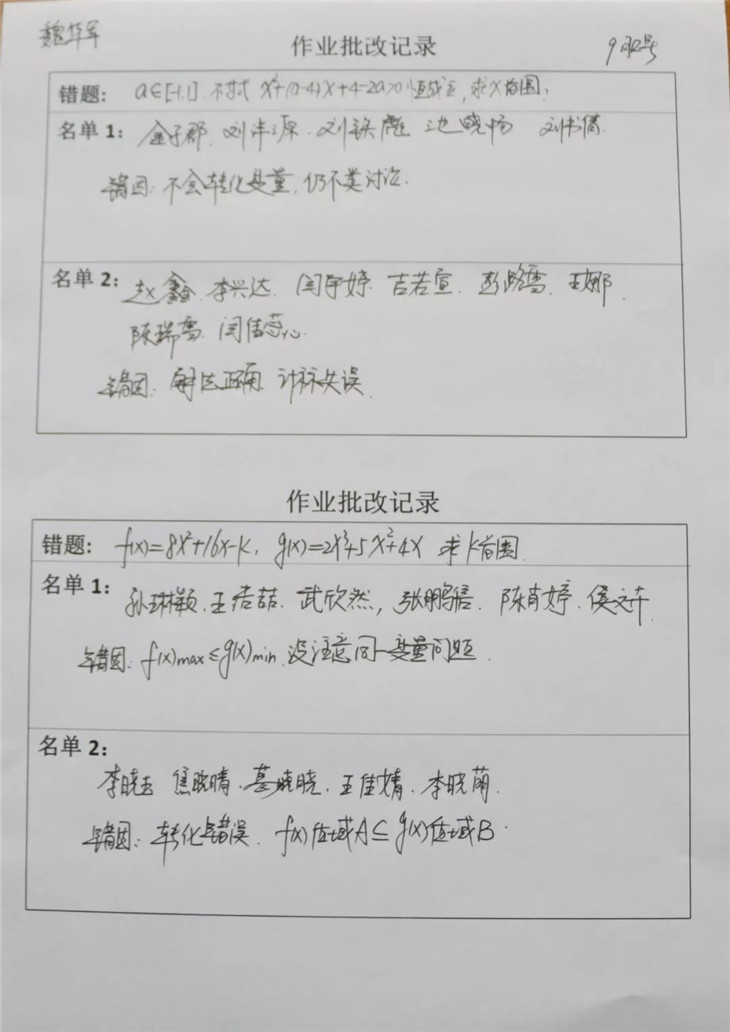 魏华军
作业批改记录
错题: a∈[-1,1] 不等式 x²+(a-4)x+4-2a>0恒成立,求x范围,
名单1: 金子郡. 刘沣源. 刘镇彪 池晓畅 刘书倩.
错因: 不会转化变量,仍不类讨论.
名单2: 赵鑫. 李兴达. 闫宇婷. 吉若宣. 彭路雪. 王娜.
陈瑞雪. 闫倍蕊.
错因: 解法正确. 计标失误.
作业批改记录
错题: f(x)=8x²+16x-k, g(x)=2x³+5x²+4x 求k范围.
名单1: 孙琳颖. 王喆. 武欣然, 张鹏. 陈肖婷. 侯文卉.
错因: f(x)max≤g(x)min. 没注意同一变量问题.
名单2:
李晓玉 焦晓晴. 綦晓晓. 王佳婧. 李晓萌.
错因: 转化错误. f(x)值域A⊆g(x)值域B.